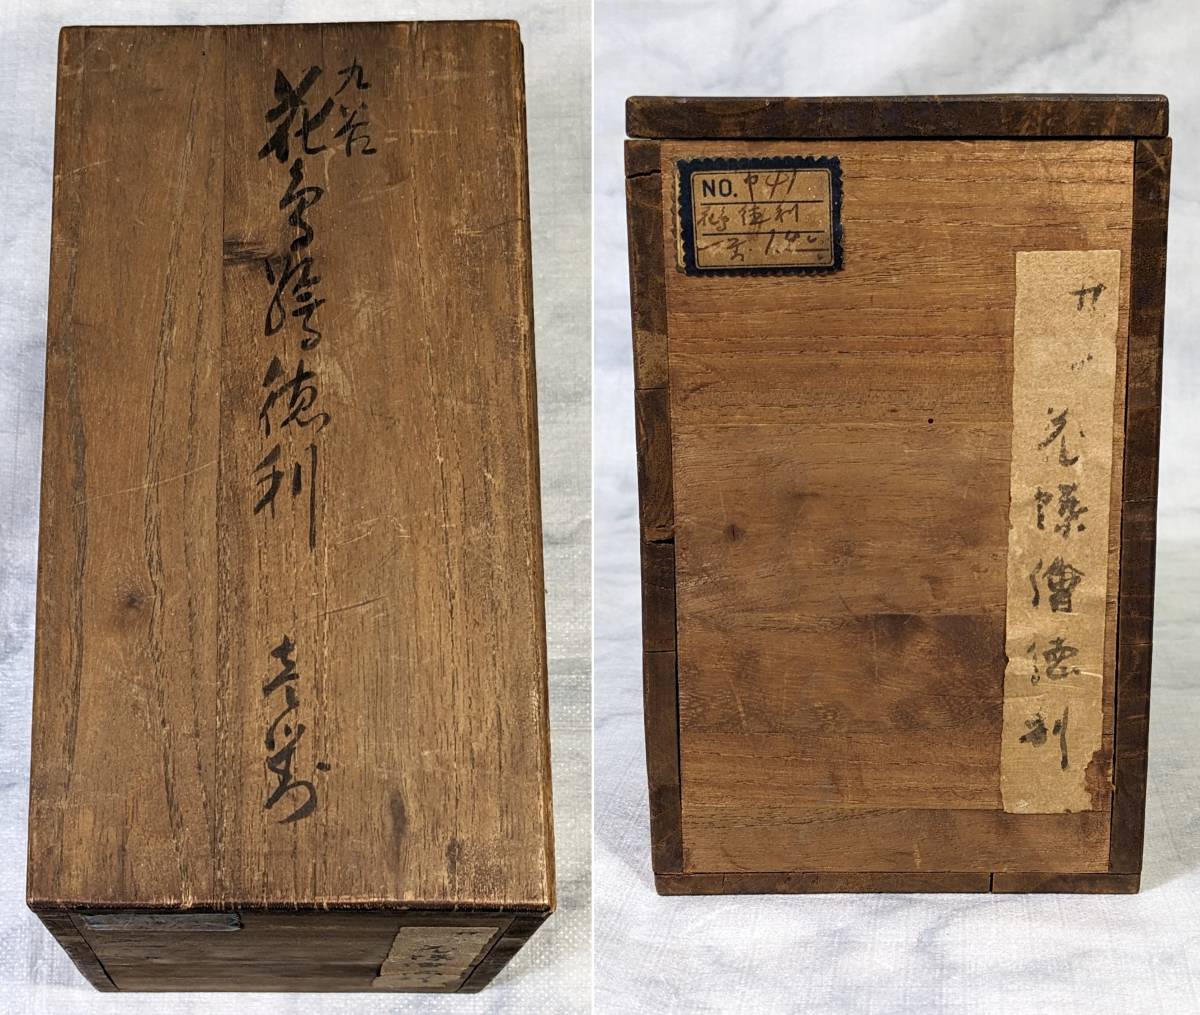 九谷
花鳥繪徳利
壱對
NO. 中41
花鳥徳利
一対
花蝶繪徳利